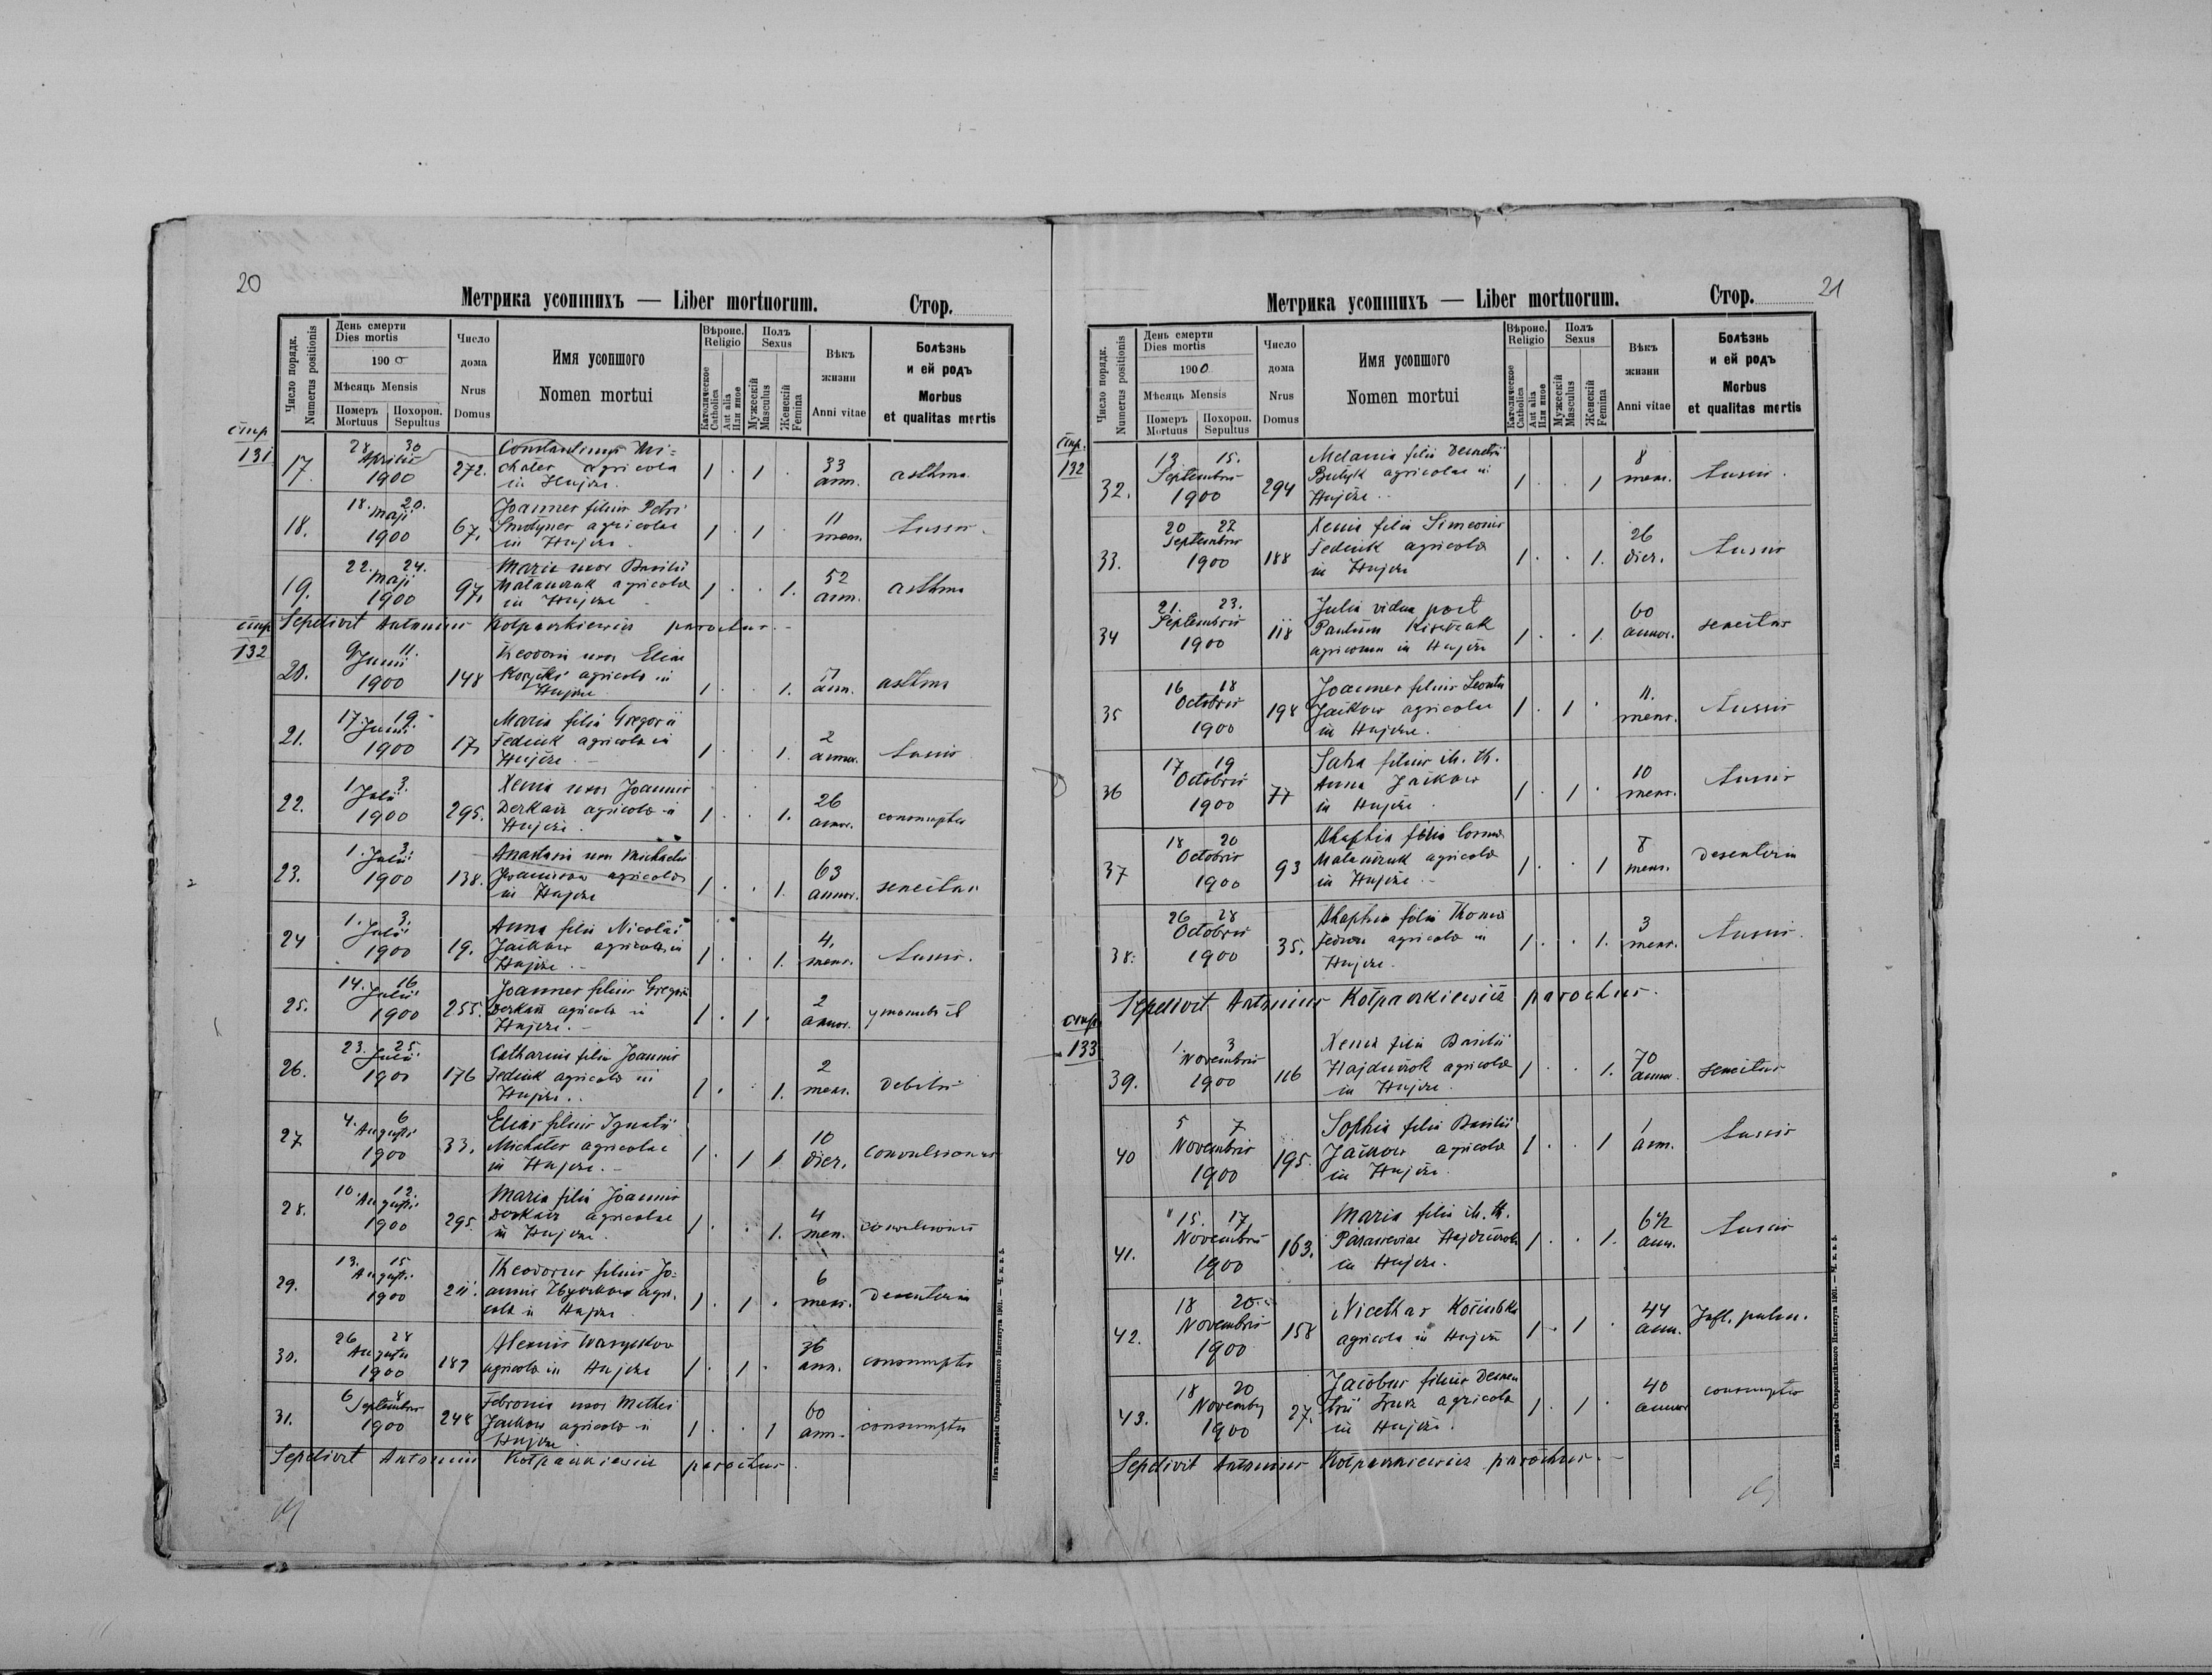 20
Метрика усопшихъ — Liber mortuorum. Стор.
Число порядк. Numerus positionis
День смерти Dies mortis 1900 Мѣсяць Mensis
Померъ Mortuus Похорон. Sepultus
Число дома Nrus Domus
Имя усопшого Nomen mortui
Вѣроис. Religio
Католическое Catholica Aut alia Или иное
Полъ Sexus
Мужескій Masculus Женскій Femina
Вѣкъ жизни Anni vitae
Болѣзнь и ей родъ Morbus et qualitas mortis
стр 131
17. 28 30 Aprilis 1900 272. Constantinus Mi=
chater agricola in Hujcze. 1 . 1 . 33 ann. asthma
18. 18. 20. Maji 1900 67. Joannes filius Petri
agricolae in Hujcze 1 . 1 . 11 mens. tussis.
19. 22. 24. Maji 1900 97. Maria uxor Basilii
agricolae in Hujcze 1 . . 1. 52 ann. asthma
стр 132
Sepelivit Antonius Kołpaczkiewicz parochus.
20. 9 11. Junii 1900 148 uxor Eliae
agricolae in Hujcze 1 . . 1. ann. asthma
21. 17. 19. Junii 1900 17. Maria filia Gregorii
Fediuk agricolae in Hujcze. 1 . . 1. 2 annor. tussis
22. 1 3. Julii 1900 295. Xenia uxor Joannis
Derkacz agricolae in Hujcze. 1 . . 1. 26 annor. consumptio
23. 1. 3. Julii 1900 138. Anastasia uxor Michaelis
agricolae in Hujcze 1 . . 1. 63 annor. senectus
24 1. 3. Julii 1900 19. Anna filia Nicolai
Jaikow agricolae in Hujcze. 1 . . 1. 4. mens. tussis.
25. 14. 16 Julii 1900 255. Joannes filius Gregorii
Derkacz agricolae in Hujcze. 1 . 1 . 2 annor.
26. 23. 25. Julii 1900 176 Catharina filia Joannis
Fediuk agricolae in Hujcze. 1 . . 1. 2 mens. debilis
27 4. 6 Augusti 1900 33. Elias filius Ignatii
Michater agricolae in Hujcze. 1 . 1 1 10 dier. convulsiones
28. 10. 12. Augusti 1900 295. Maria filia Joannis
Derkacz agricolae in Hujcze. 1 . . 1. 4 men. convulsiones
29. 13. 15 Augusti 1900 211. Theodorus filius Jo=
annis agri=
cola in Hujcze 1 . 1 . 6 mens. desenteria
30. 26 28 Augusti 1900 187 Wasylkow
agricola in Hujcze 1 . 1 . 36 ann. consumptio
31. 6 8 Septembris 1900 248 Febronia uxor Mathei
Jaikow agricolae in Hujcze. 1 . . 1 60 ann. consumptio
Sepelivit Antonius Kołpaczkiewicz parochus.
Изъ типографіи Ставропигійского Института 1901. — Ч. к. в. 5.
21
Метрика усопшихъ — Liber mortuorum. Стор.
Число порядк. Numerus positionis
День смерти Dies mortis 1900 Мѣсяць Mensis
Померъ Mortuus Похорон. Sepultus
Число дома Nrus Domus
Имя усопшого Nomen mortui
Вѣроис. Religio
Католическое Catholica Aut alia Или иное
Полъ Sexus
Мужескій Masculus Женскій Femina
Вѣкъ жизни Anni vitae
Болѣзнь и ей родъ Morbus et qualitas mortis
стр. 132
32. 13 15. Septembris 1900 294 Melania filia Demetrii
agricolae in Hujcze. 1 . . 1 8 mens. tussis.
33. 20 22 Septembris 1900 188 Xenia filia Simeonis
Fediuk agricolae in Hujcze 1 . . 1. 26 dier. tussis
34 21. 23. Septembris 1900 118 Julia vidua post
Paulum agricolam in Hujcze 1 . . 1. 60 annor. senectus
35 16 18 Octobris 1900 198 Joannes filius
Jaikow agricolae in Hujcze. 1 . 1 . 11. mens. tussis
36 17 19 Octobris 1900 77 filius ill. th.
Anna Jaikow in Hujcze. 1 . 1 . 10 mens. tussis
37 18 20 Octobris 1900 93 Ahaphia filia Cosmae
agricolae in Hujcze. 1 . . 1 8 mens. desenteria
38. 26 28 Octobris 1900 35. Ahaphia filia Thomae
agricolae in Hujcze. 1 . . 1. 3 mens. tussis.
Sepelivit Antonius Kołpaczkiewicz parochus.
стр. 133
39. 1. 3 Novembris 1900 116 Xenia filia Basilii
Hajduczok agricolae in Hujcze. 1 . . 1. 70 annor. senectus
40 5 7 Novembris 1900 195. Sophia filia Basilii
Jaikow agricolae in Hujcze. 1 . . 1 1 ann. tussis
41. 15. 17 Novembris 1900 163. Maria filia ill. th.
Parasceviae in Hujcze. 1 . . 1. 6½ ann. tussis
42. 18 20 Novembris 1900 158 Nicetas
agricola in Hujcze 1 . 1 . 44 ann. Infl. pulm.
43. 18 20 Novembris 1900 27. Jacobus filius Deme
trii agricola in Hujcze. 1 . 1 . 40 annor consumptio
Sepelivit Antonius Kołpaczkiewicz parochus.
Изъ типографіи Ставропигійского Института 1901. — Ч. к. в. 5.